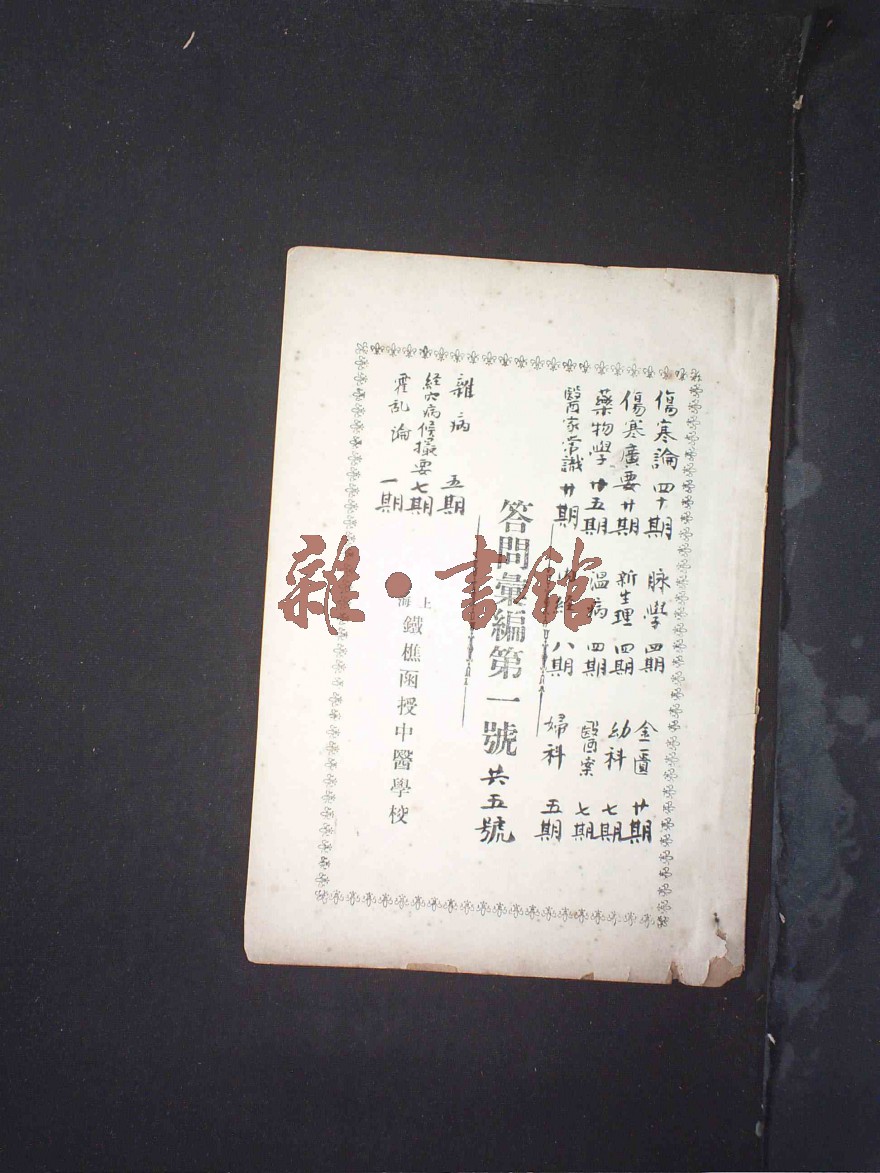 傷寒論 四十期 脉學 四期 金匱 廿期
傷寒廣要 廿期 新生理 四期 幼科 七期
藥物學 廿五期 溫病 四期 醫案 七期
醫家常識 廿期 八期 婦科 五期
答問彙編第一號 共五號
雜病 五期
経穴病候撮要 七期
霍乱論 一期
上海 鐵樵函授中醫學校
雜·書館